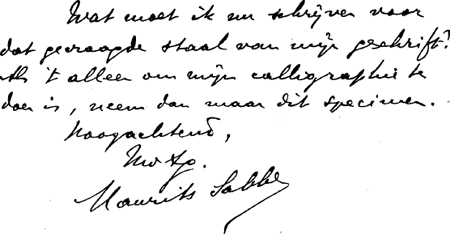 Wat moet ik nu schrijven voor
dat gevraagde staal van mijn geschrift?
Als 't alleen om mijn calligraphie te
doen is, neem dan maar dit specimen.
Hoogachtend,
Maurits Sabbe